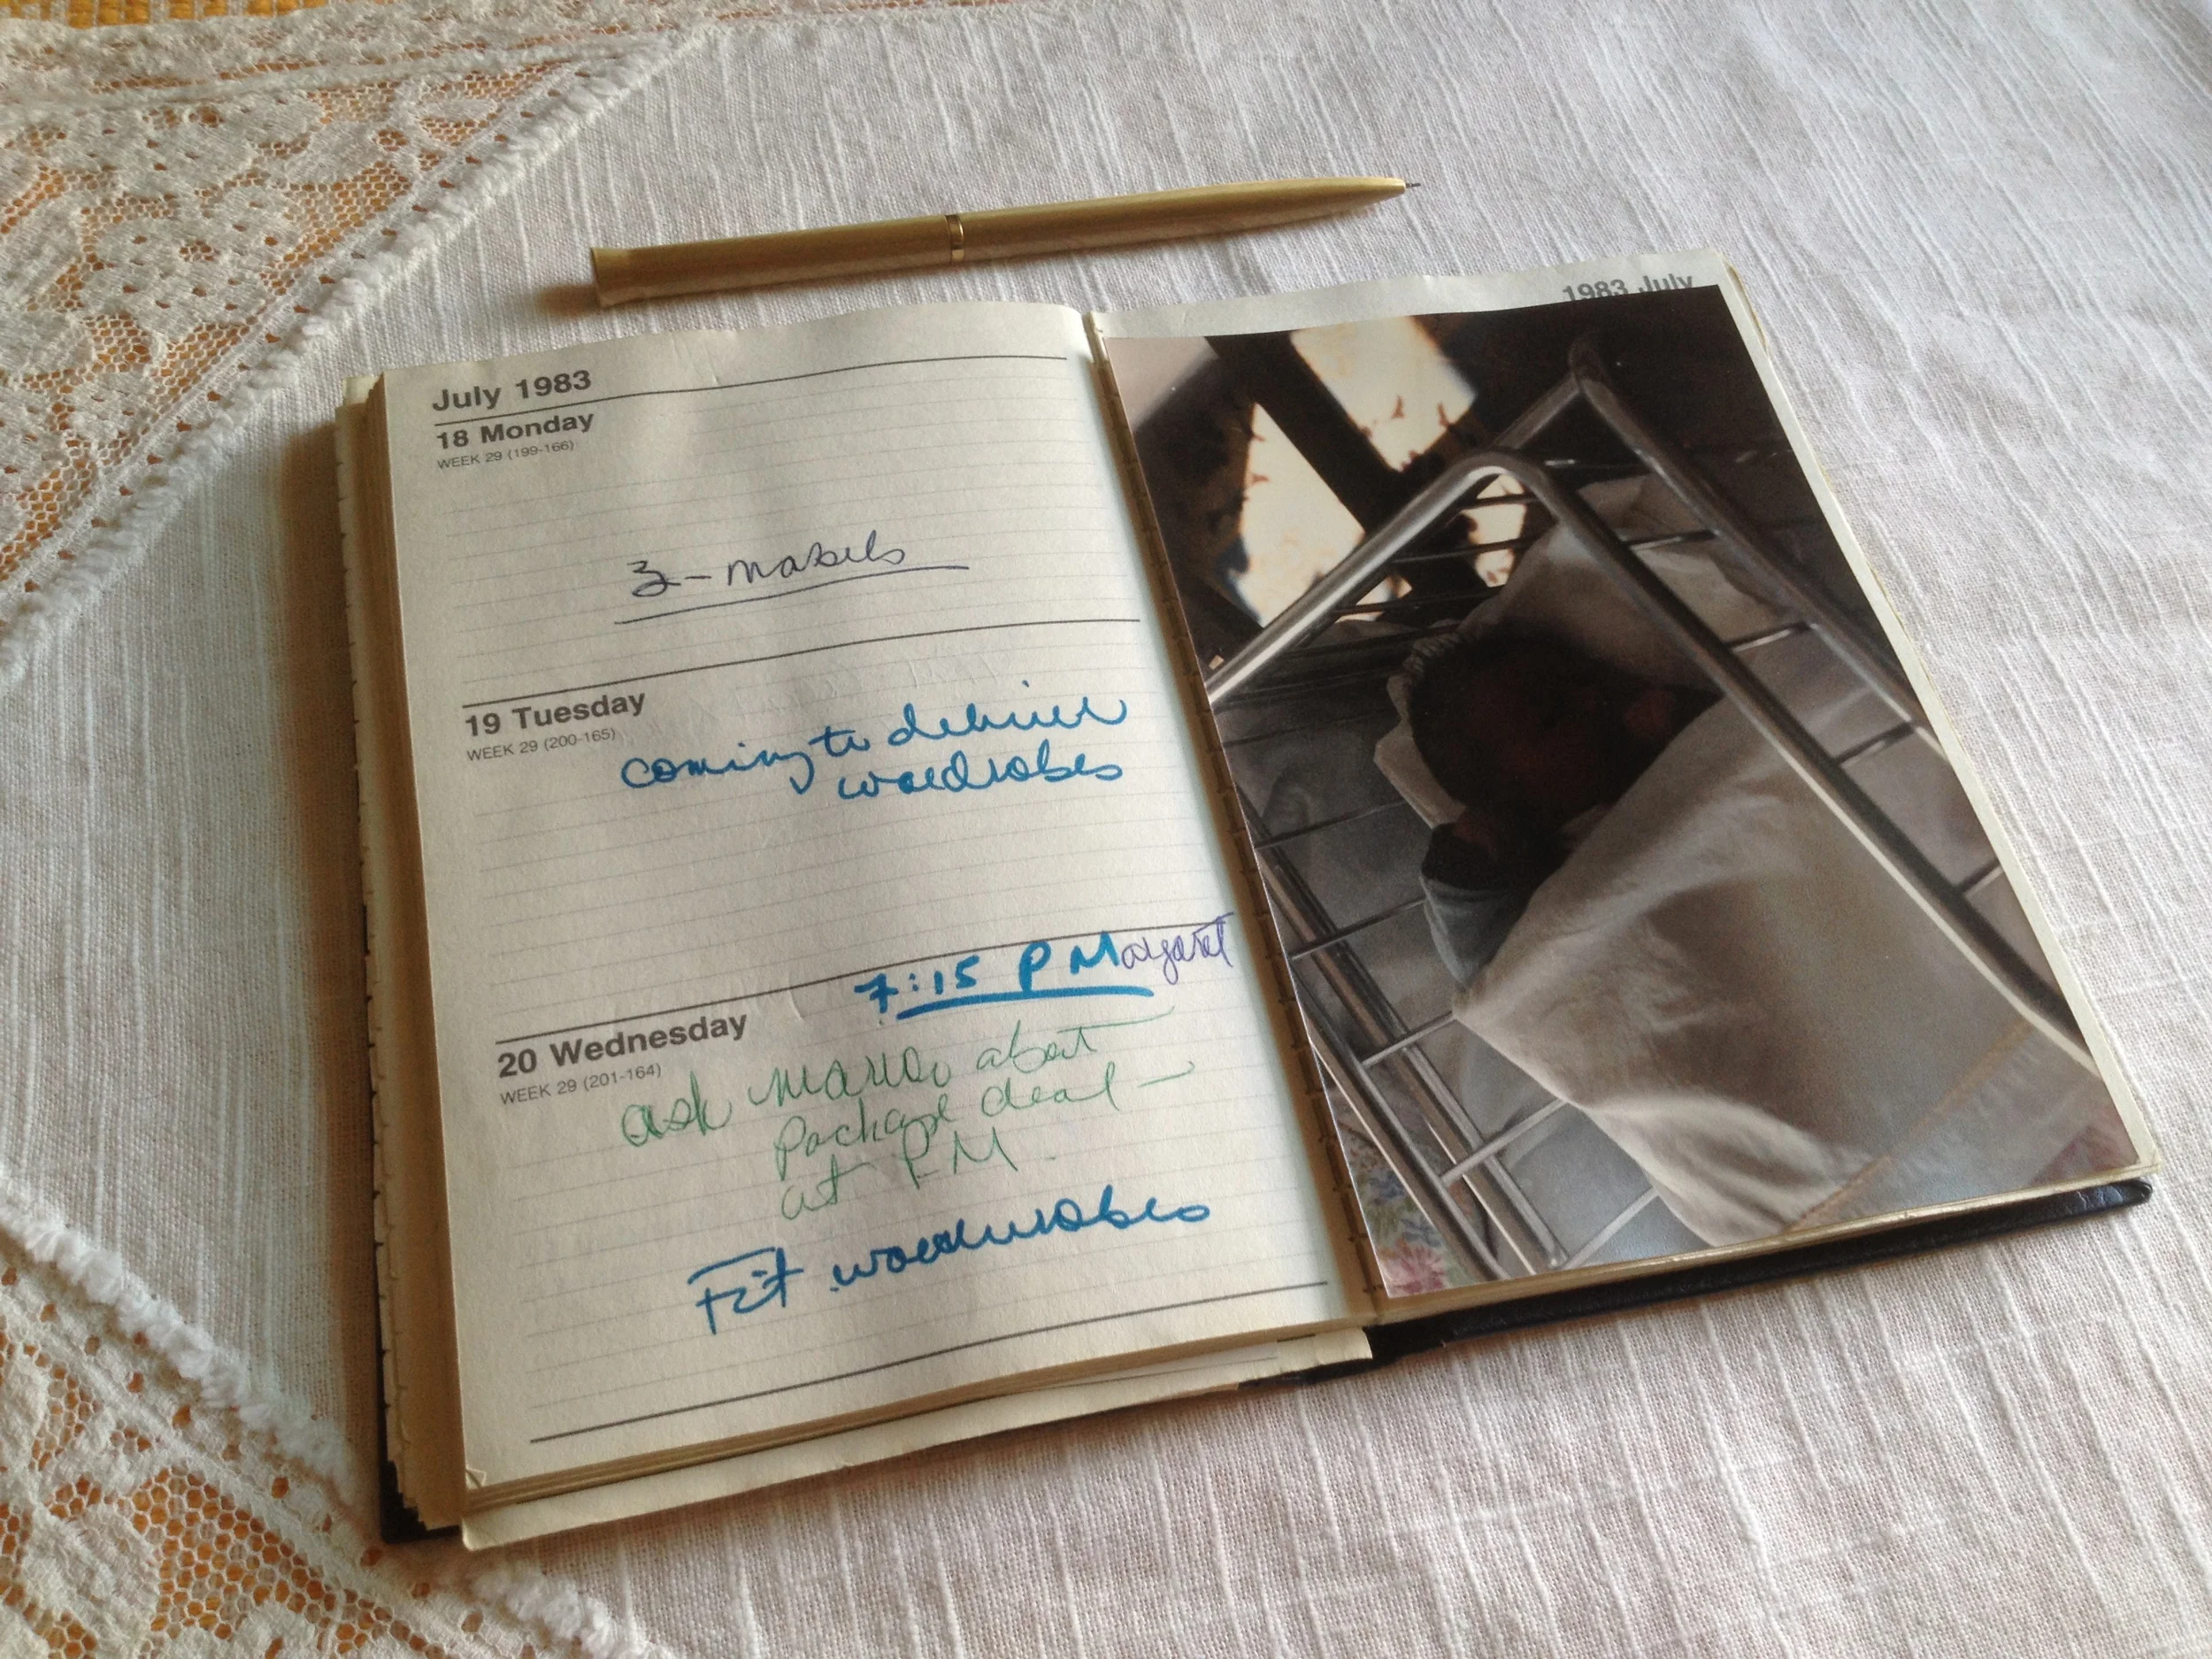 July 1983
18 Monday
WEEK 29 (199-166)
3-mabels
19 Tuesday
WEEK 29 (200-165)
coming to deliver
wardrobes
7:15 P Margaret
20 Wednesday
WEEK 29 (201-164)
ask about
package deal -
at P.M.
Fit wardrobes
1983 July